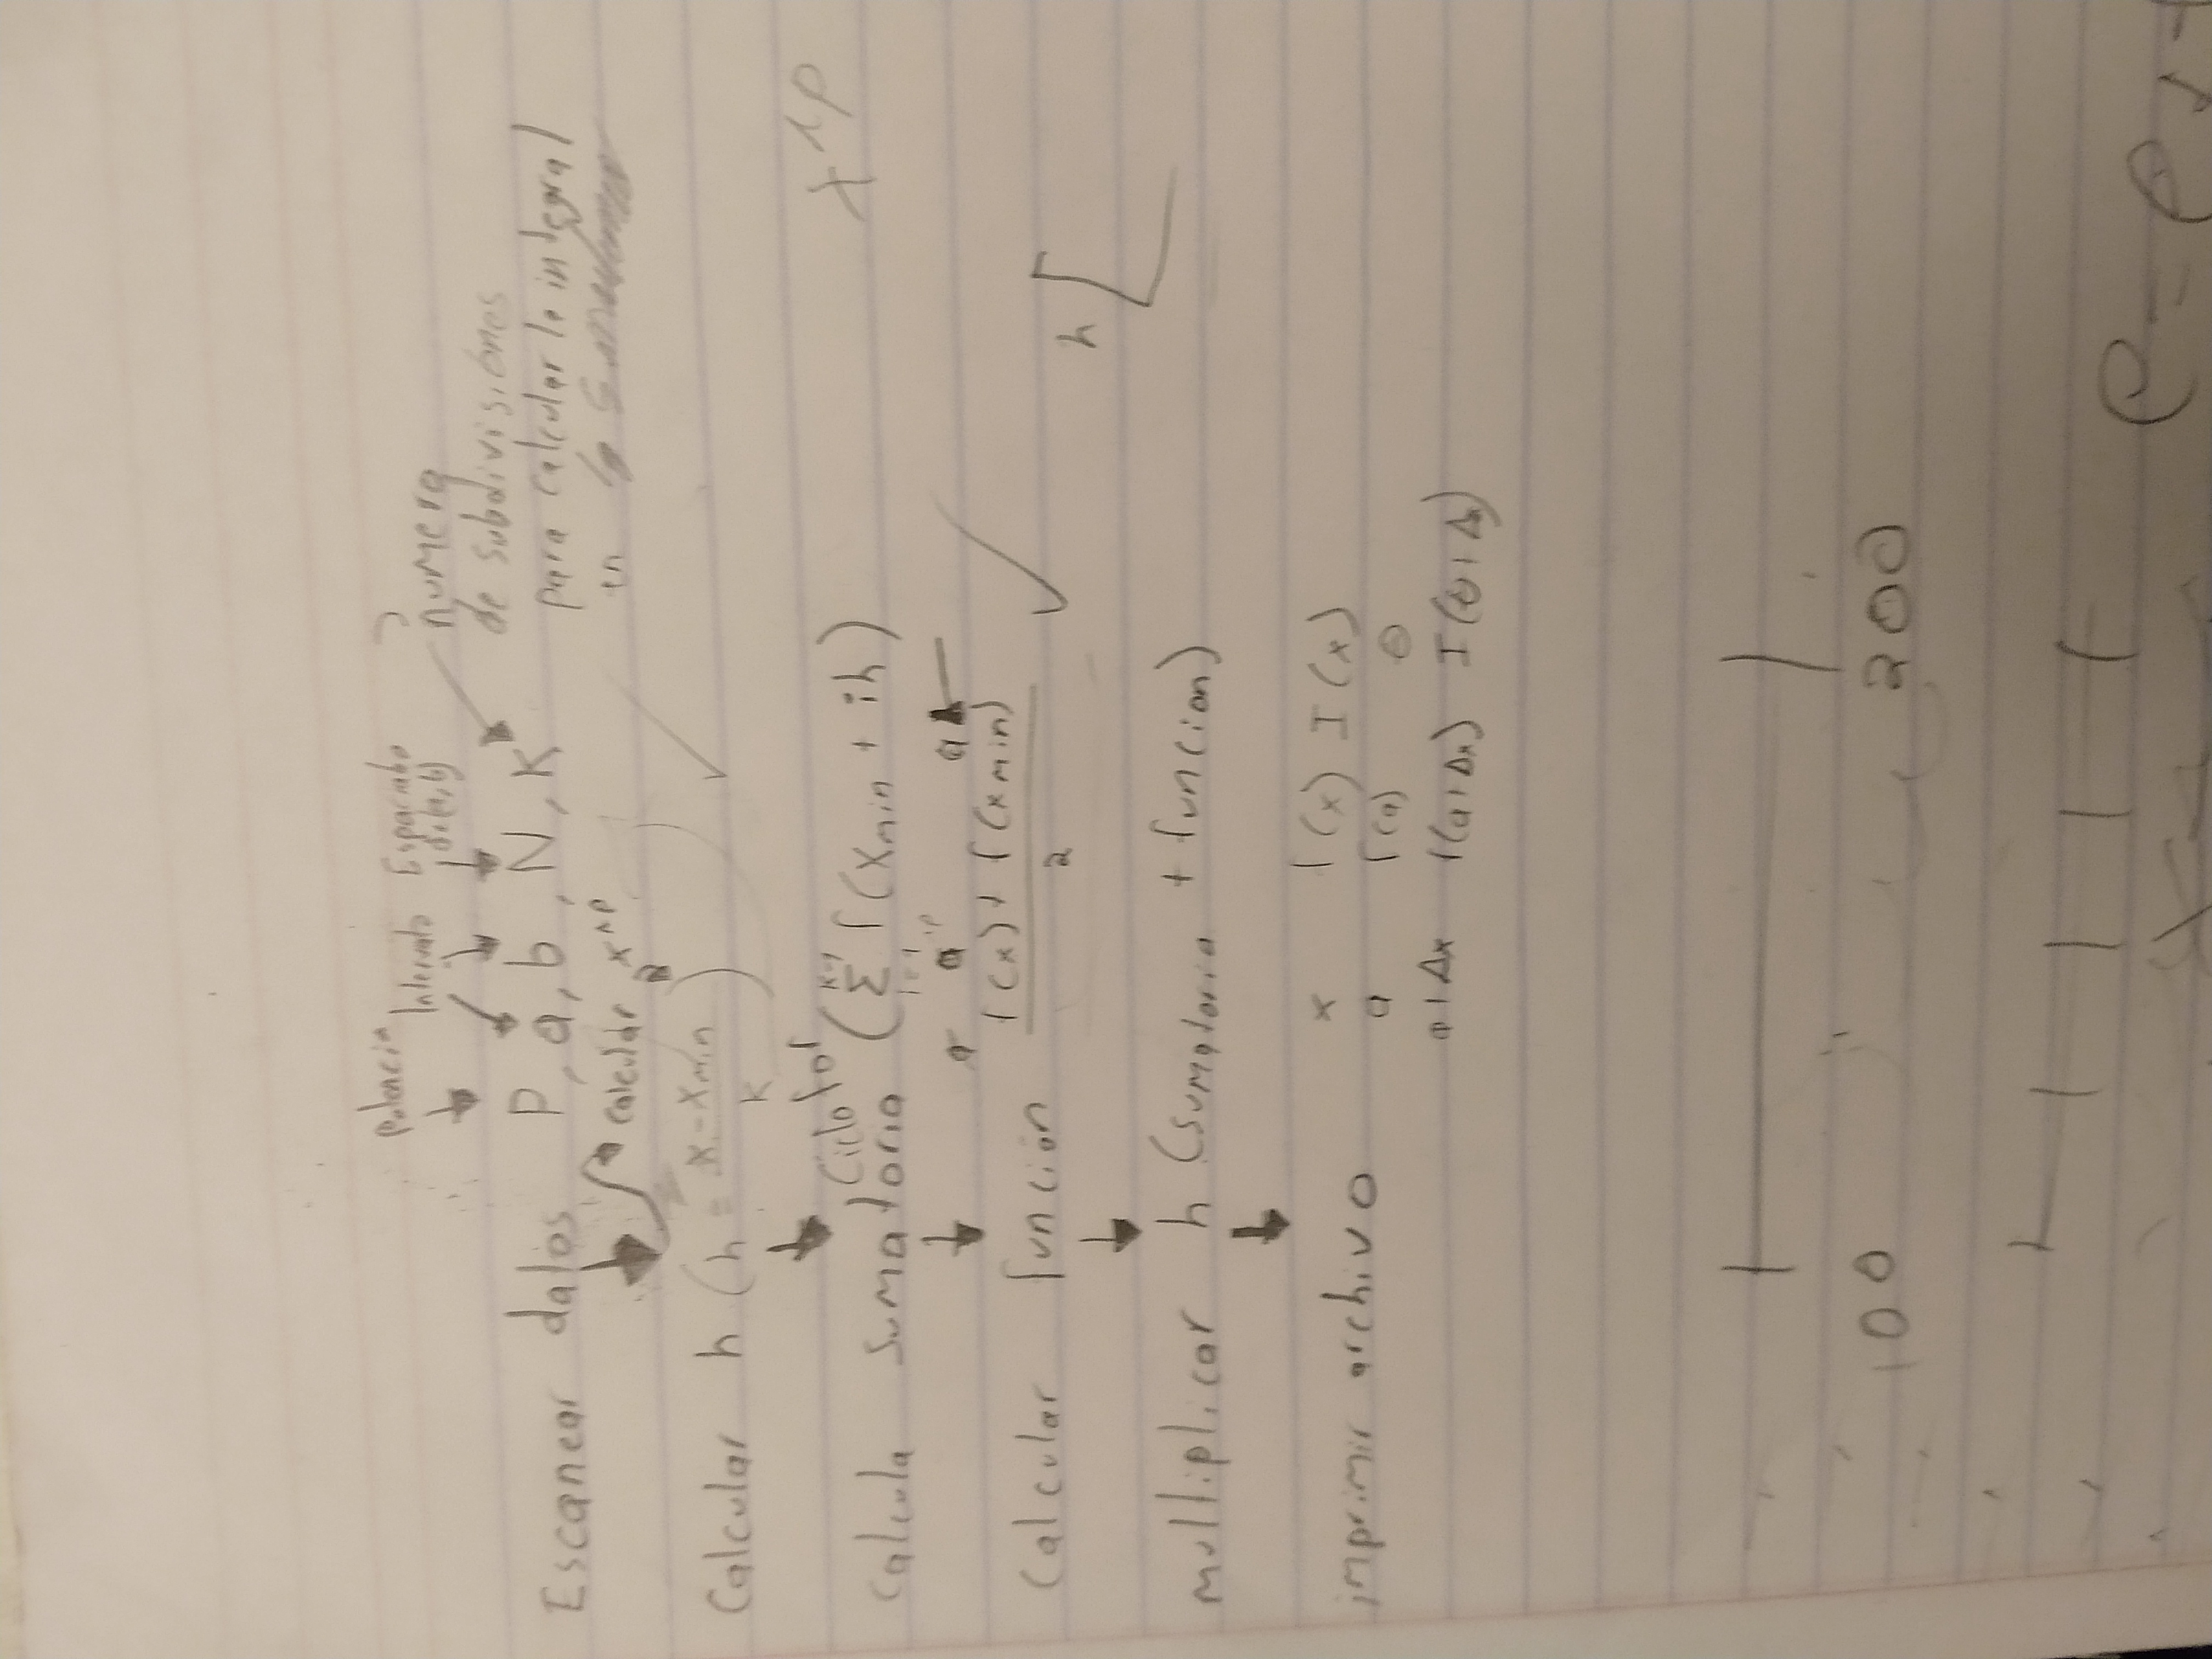 potencia Intervalo Espaciado
de (a,b)
numero
de subdivisiones
para calcular la integral
en
Escanear datos P, a, b, N, K
calcular x^p
Calcular h (h = x - xmin / K)
Ciclo for
Calcula sumatoria (K-1 Σ i=1 f(xmin + ih)
x^p
a^p a
Calcular función f(x) + f(xmin) / 2
h [
multiplicar h (sumatoria + funcion)
imprimir archivo x f(x) I(x)
a f(a) 0
a+Δx f(a+Δx)
100 200